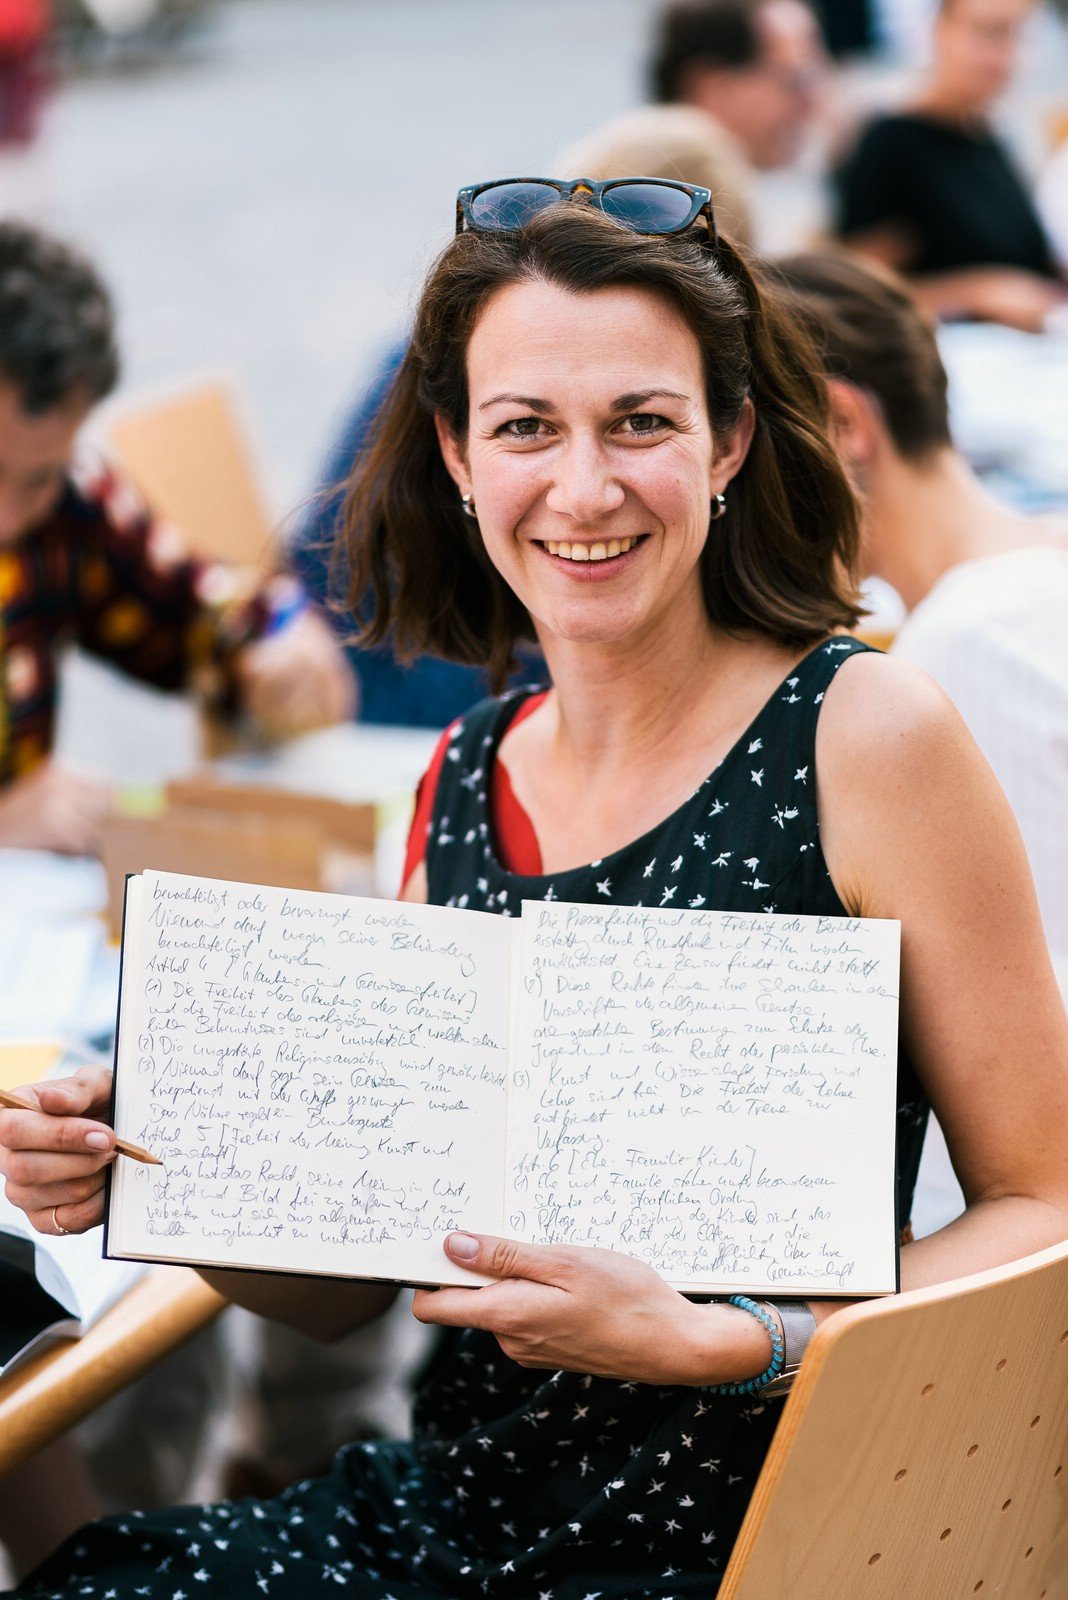 benachteiligt oder bevorzugt werden.
Niemand darf wegen seiner Behinderung
benachteiligt werden.
Artikel 4 [Glaubens- und Gewissensfreiheit]
(1) Die Freiheit des Glaubens, des Gewissens
und die Freiheit des religiösen und weltanschau-
lichen Bekenntnisses sind unverletzlich.
(2) Die ungestörte Religionsausübung wird gewährleistet
(3) Niemand darf gegen sein Gewissen zum
Kriegsdienst mit der Waffe gezwungen werden.
Das Nähere regelt ein Bundesgesetz.
Artikel 5 [Freiheit der Meinung, Kunst und
Wissenschaft]
(1) Jeder hat das Recht, seine Meinung in Wort,
Schrift und Bild frei zu äußern und zu
verbreiten und sich aus allgemein zugänglichen
Quellen ungehindert zu unterrichten
Die Pressefreiheit und die Freiheit der Bericht-
erstattung durch Rundfunk und Film werden
gewährleistet. Eine Zensur findet nicht statt
(2) Diese Rechte finden ihre Schranken in den
Vorschriften der allgemeinen Gesetze,
den gesetzlichen Bestimmungen zum Schutze der
Jugend und in dem Recht der persönlichen Ehre.
(3) Kunst und Wissenschaft, Forschung und
Lehre sind frei. Die Freiheit der Lehre
entbindet nicht von der Treue zur
Verfassung.
Art. 6 [Ehe - Familie - Kinder]
(1) Ehe und Familie stehen unter besonderem
Schutze der staatlichen Ordnung.
(2) Pflege und Erziehung der Kinder sind das
natürliche Recht der Eltern und die
obliegende Pflicht. Über ihre
die staatliche Gemeinschaft.